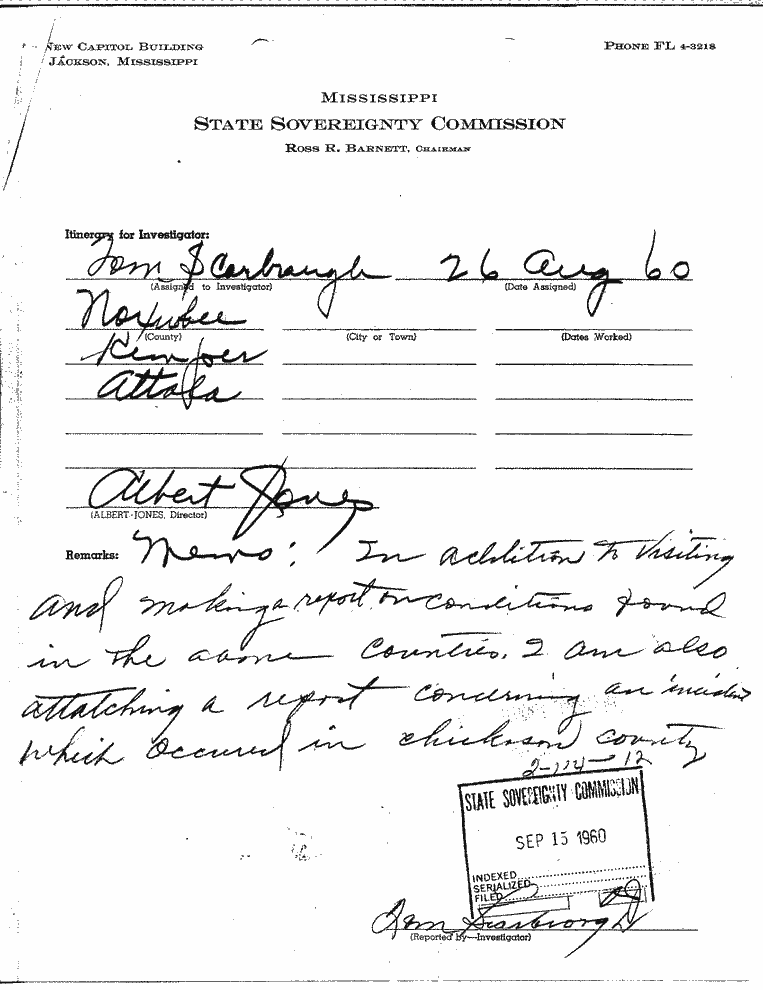 NEW CAPITOL BUILDING
JACKSON, MISSISSIPPI
PHONE FL 4-3218
MISSISSIPPI
STATE SOVEREIGNTY COMMISSION
ROSS R. BARNETT, CHAIRMAN
Itinerary for Investigator:
Tom Scarbraugh 26 Aug 60
(Assigned to Investigator) (Date Assigned)
Noxubee
(County) (City or Town) (Dates Worked)
Kemper
Attala
Albert Jones
(ALBERT JONES, Director)
Remarks: Memo: In addition to visiting
and making a report on conditions found
in the above counties. I am also
attatching a report concerning an incident
which occured in chickasaw county
2-114-12
STATE SOVEREIGNTY COMMISSION
SEP 15 1960
INDEXED
SERIALIZED
FILED
Tom Scarbrough
(Reported by—Investigator)